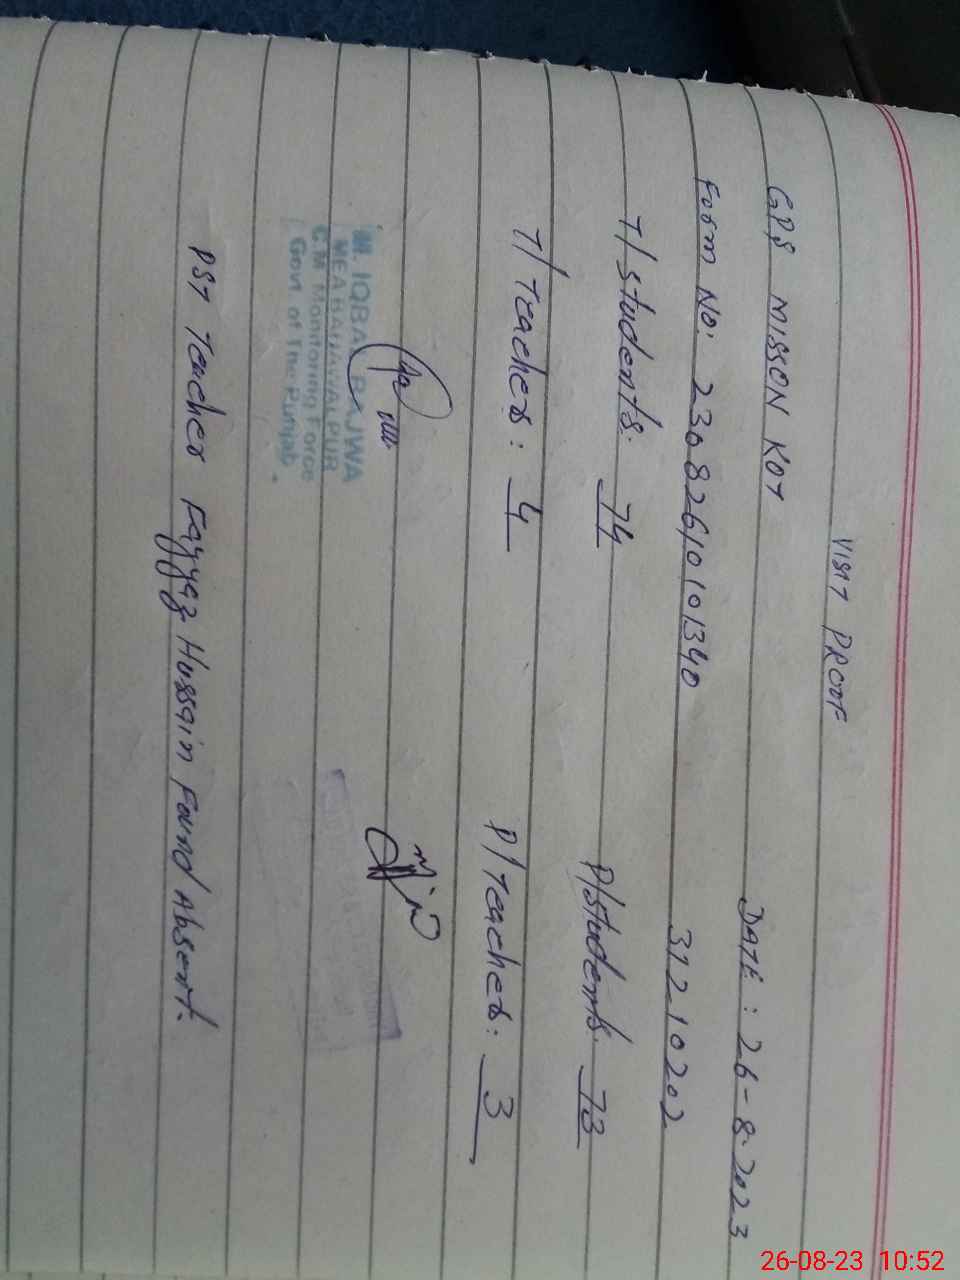 VISIT PROOF
GPS MISSON KOT DATE : 26-8-2023
Form No: 2308261010 1340 31210202
T/Students: 74 P/Students: 73
T/Teachers: 4 P/Teachers: 3
M. IQBAL BAJWA
MEA BAHAWALPUR
C.M Monitoring Force
Govt. of The Punjab.
PST Teacher Fayyaz Hussain Found Absent.
26-08-23 10:52